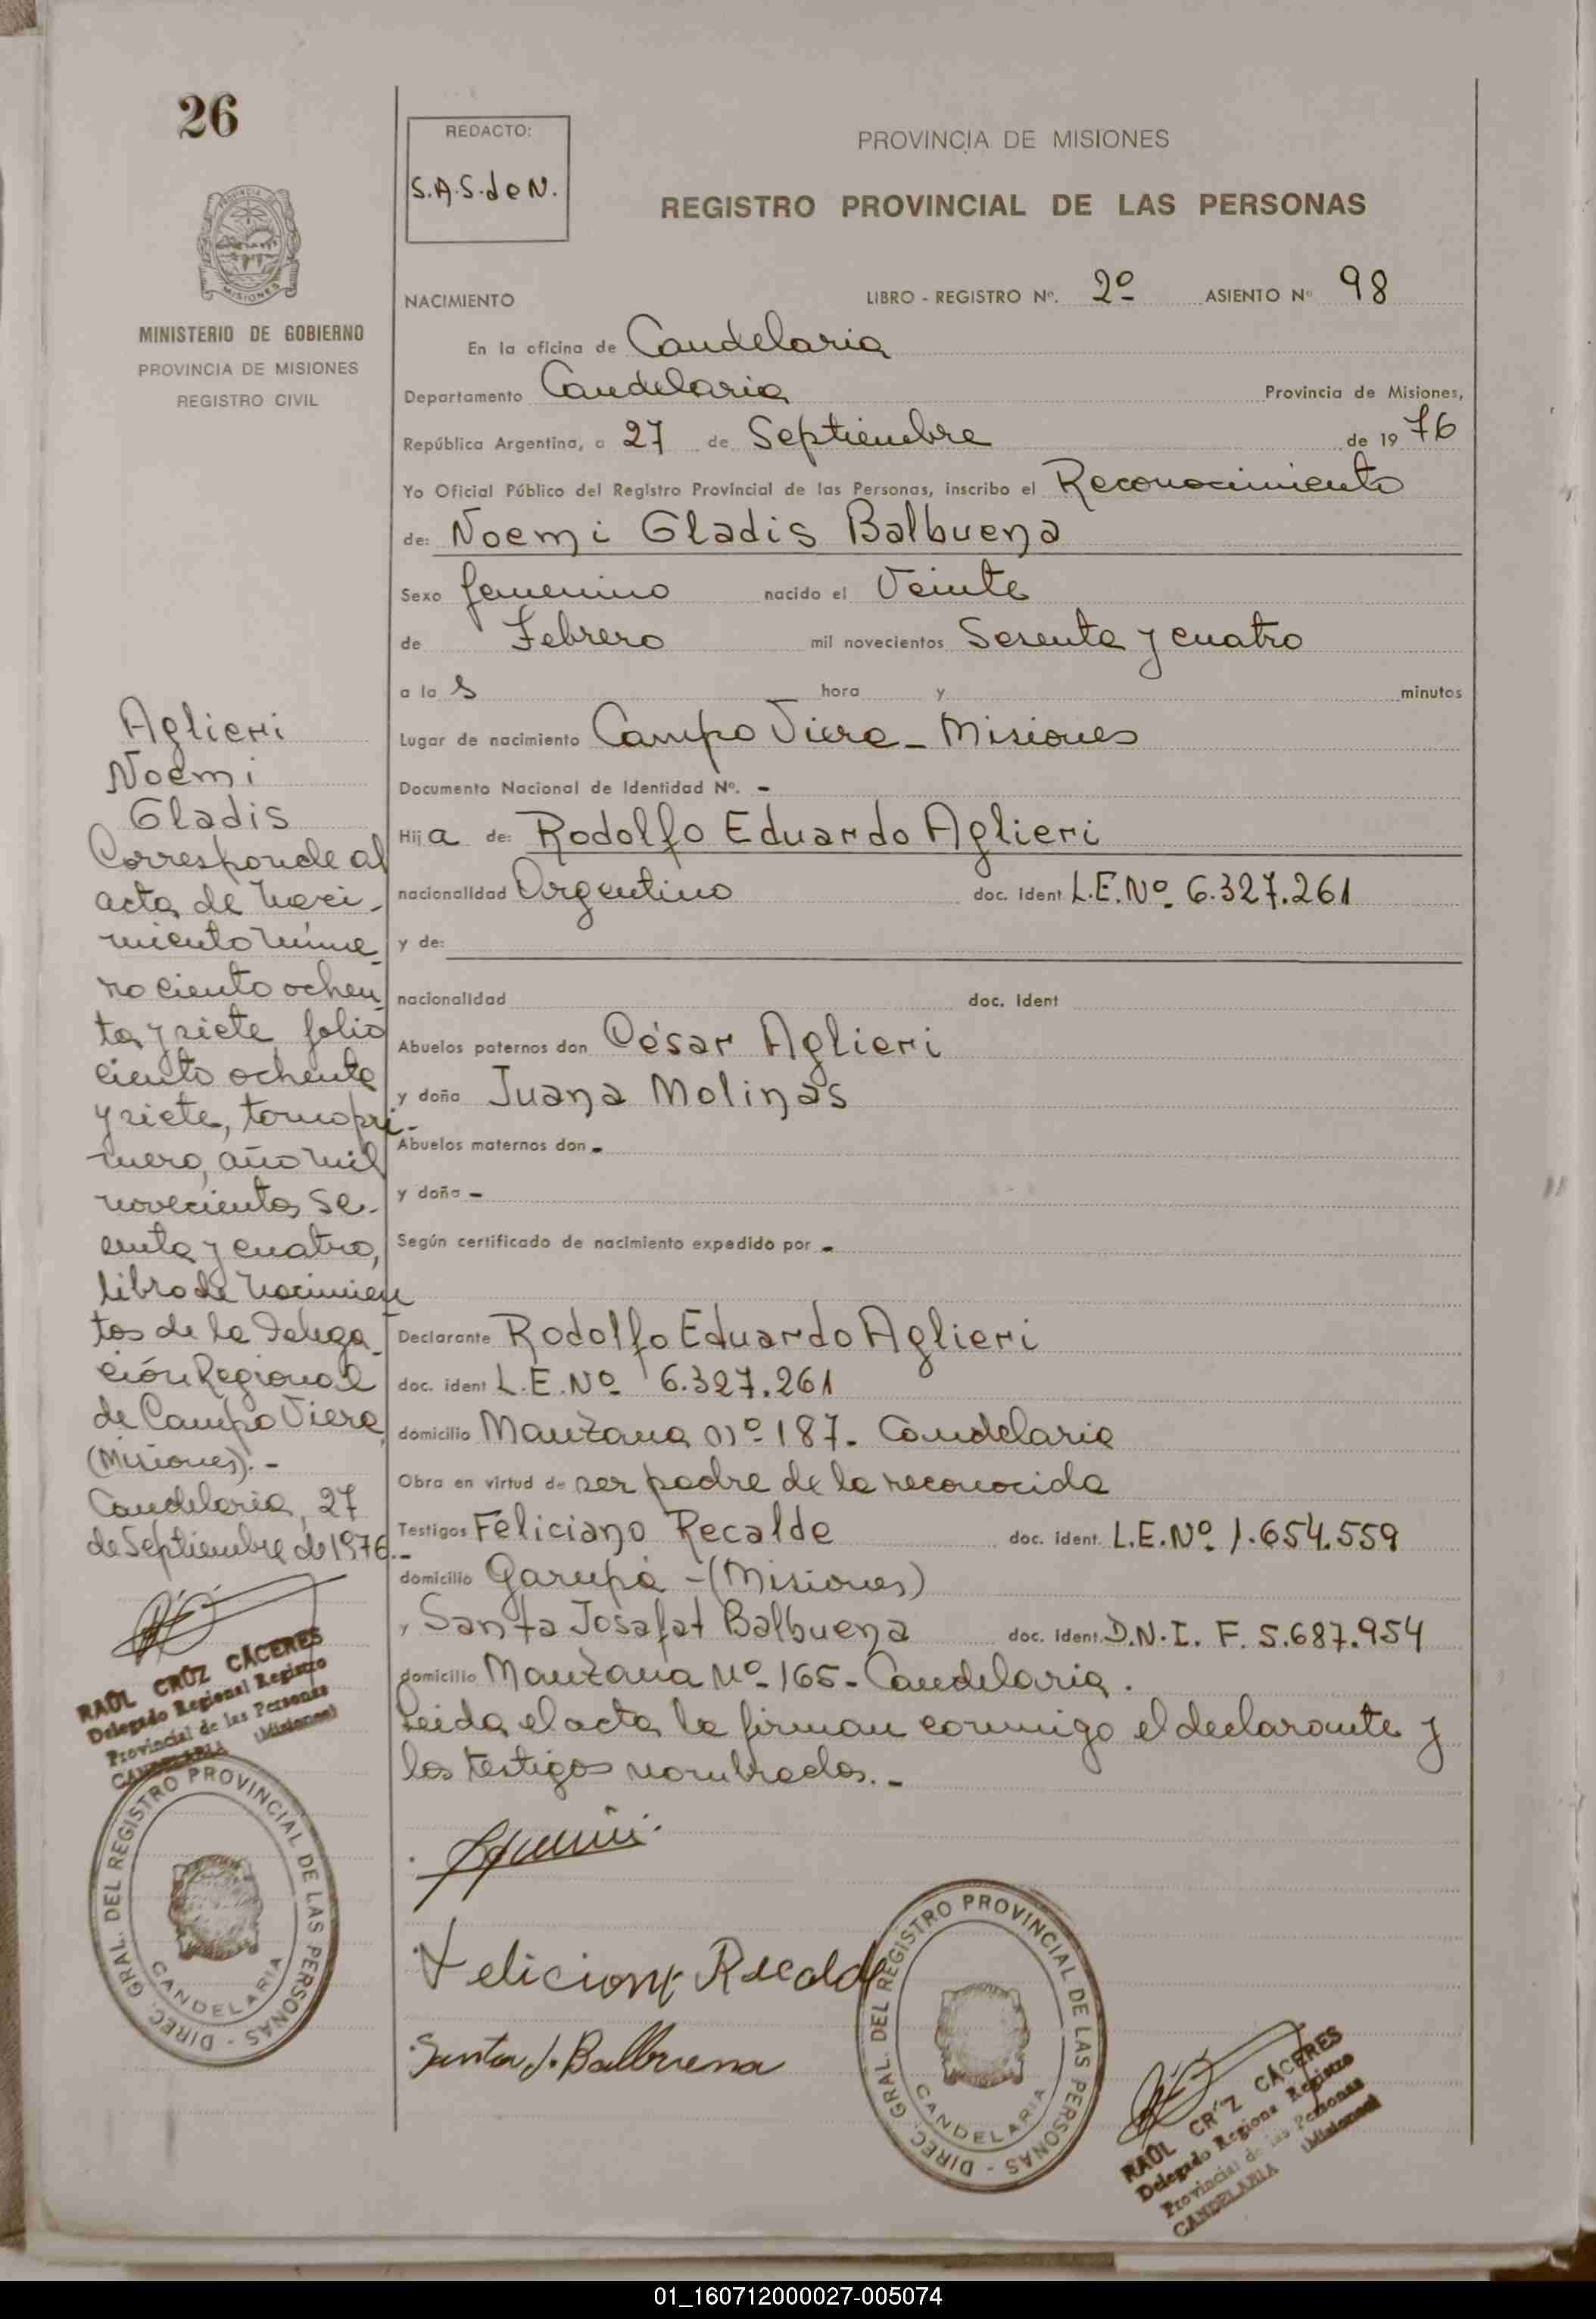 26
PROVINCIA DE MISIONES
MINISTERIO DE GOBIERNO
PROVINCIA DE MISIONES
REGISTRO CIVIL
Aglieri
Noemi
Gladis
Corresponde al
acta de naci-
miento núme-
ro ciento ochen-
ta y siete folio
ciento ochenta
y siete, tomo pri-
mero, año mil
novecientos se-
senta y cuatro,
libro de nacimien
tos de la Delega-
ción Regional
de Campo Viera,
(Misiones).-
Candelaria, 27
de Septiembre de 1976.-
RAÚL CRUZ CÁCERES
Delegado Regional Registro
Provincial de las Personas
CANDELARIA (Misiones)
DIREC. GRAL. DEL REGISTRO PROVINCIAL DE LAS PERSONAS -
CANDELARIA
REDACTO:
S.A.S. de N.
PROVINCIA DE MISIONES
REGISTRO PROVINCIAL DE LAS PERSONAS
NACIMIENTO LIBRO - REGISTRO Nº. 2º ASIENTO Nº 98
En la oficina de Candelaria
Departamento Candelaria Provincia de Misiones,
República Argentina, a 27 de Septiembre de 19 76
Yo Oficial Público del Registro Provincial de las Personas, inscribo el Reconocimiento
de: Noemi Gladis Balbuena
Sexo femenino nacido el Veinte
de Febrero mil novecientos Sesenta y cuatro
a la s hora y minutos
Lugar de nacimiento Campo Viera - Misiones
Documento Nacional de Identidad Nº. -
Hij a de: Rodolfo Eduardo Aglieri
nacionalidad Argentino doc. ident L.E.Nº 6.327.261
y de:
nacionalidad doc. ident
Abuelos paternos don César Aglieri
y doña Juana Molinas
Abuelos maternos don -
y doña -
Según certificado de nacimiento expedido por -
Declarante Rodolfo Eduardo Aglieri
doc. ident L.E.Nº 6.327.261
domicilio Manzana nº 187 - Candelaria
Obra en virtud de ser padre de la reconocida
Testigos Feliciano Recalde doc. ident. L.E.Nº 1.654.559
domicilio Garupá - (Misiones)
y Santa Josafat Balbuena doc. ident. D.N.I. F. 5.687.954
domicilio Manzana Nº 165 - Candelaria.
Leida el acta la firman conmigo el declarante y
los testigos nombrados.-
Feliciano Recalde
Santa J. Balbuena
DIREC. GRAL. DEL REGISTRO PROVINCIAL DE LAS PERSONAS -
CANDELARIA
RAÚL CRUZ CÁCERES
Delegado Regional Registro
Provincial de las Personas
CANDELARIA (Misiones)
01_160712000027-005074